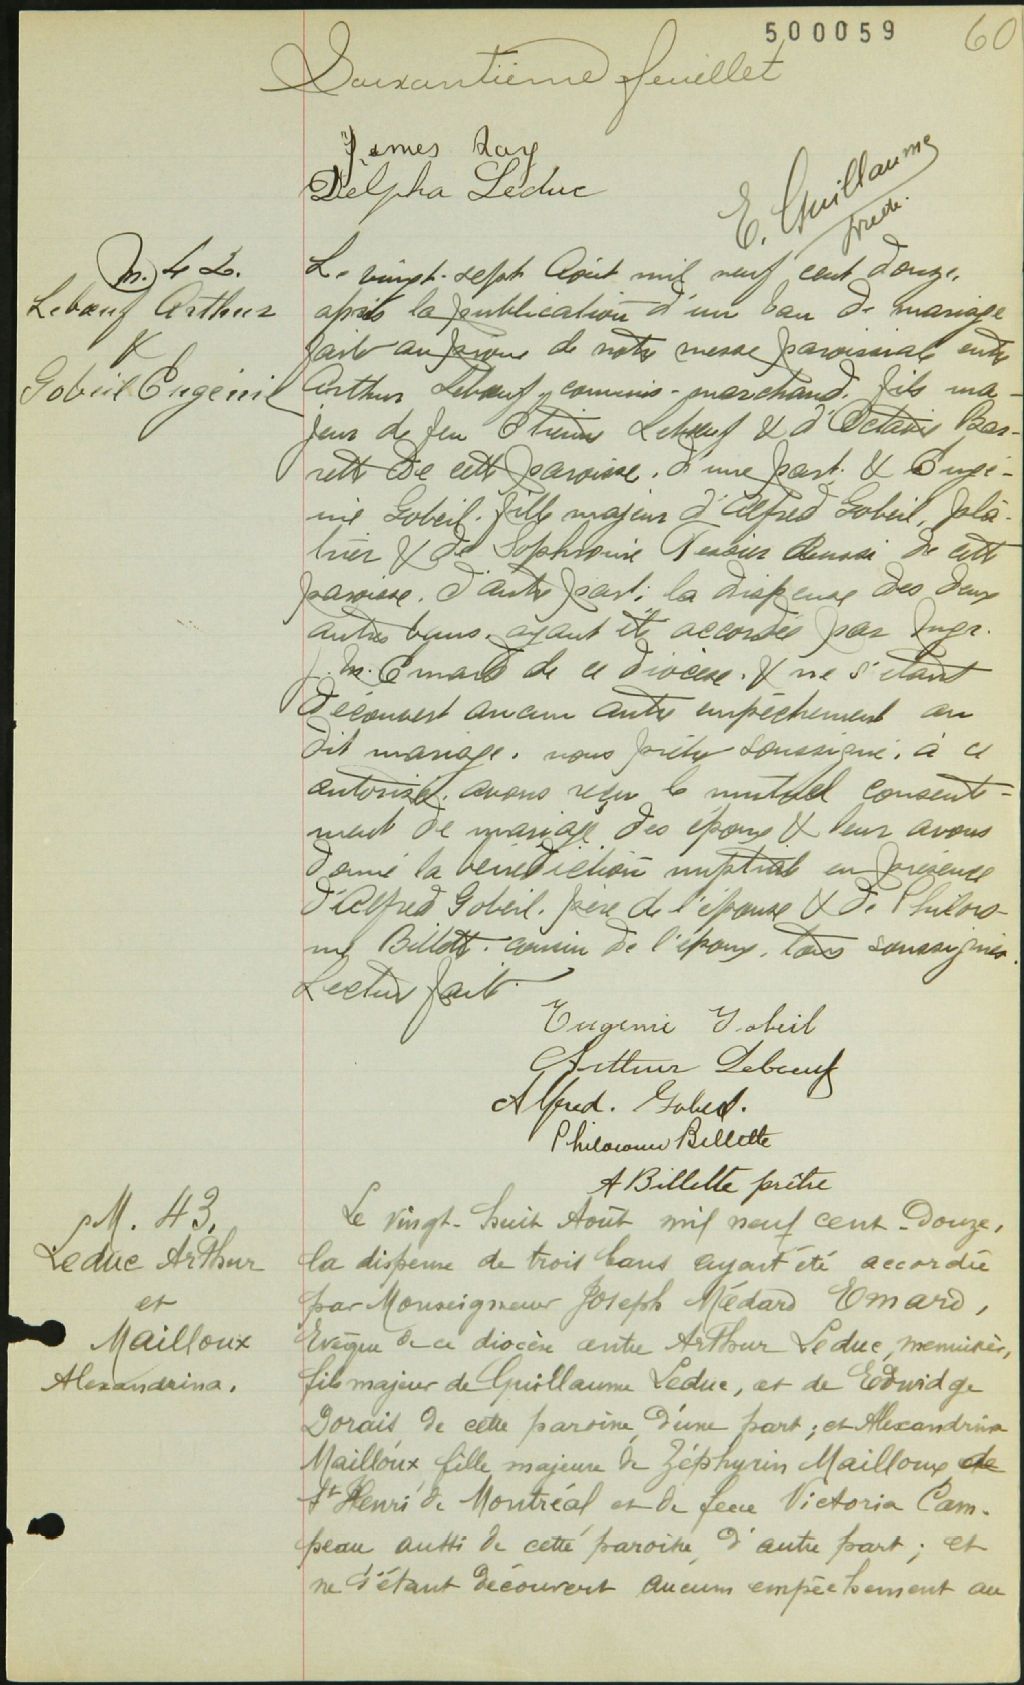 500059 60
Soixantième feuillet
James Kay
Delpha Leduc
E. Guillaume
ptre
M. 42.
Leboeuf Arthur
&
Gobeil Eugénie
Le vingt-sept Août mil neuf cent douze,
après la publication d'un ban de mariage
faite au prône de notre messe paroissiale entre
Arthur Leboeuf, commis-marchand, fils ma-
jeur de feu Etienne Leboeuf & d'Octavie Bar-
rette de cette paroisse, d'une part, & Eugé-
nie Gobeil, fille majeure d'Alfred Gobeil, plâ-
trier & de Sophronie Tessier aussi de cette
paroisse, d'autre part; la dispense des deux
autres bans, ayant été accordée par Mgr.
J. M. Emard de ce diocèse, & ne s'étant
découvert aucun autre empêchement au
dit mariage, nous prêtre soussigné, à ce
autorisé, avons reçu le mutuel consente-
ment de mariage des époux & leur avons
donné la bénédiction nuptiale en présence
d'Alfred Gobeil, père de l'épouse & de Philoro-
me Billette, cousin de l'époux, tous soussignés.
Lecture faite.
Eugenie Gobeil
Arthur Leboeuf
Alfred. Gobeil.
Philorome Billette
A Billette prêtre
M. 43.
Leduc Arthur
et
Mailloux
Alexandrina.
Le vingt-huit Août mil neuf cent douze,
la dispense de trois bans ayant été accordée
par Monseigneur Joseph Médard Emard,
Evêque de ce diocèse entre Arthur Leduc, menuisier,
fils majeur de Guillaume Leduc, et de Edwidge
Dorais de cette paroisse, d'une part; et Alexandrina
Mailloux fille majeure de Zéphyrin Mailloux de
St Henri de Montréal et de feue Victoria Cam-
peau aussi de cette paroisse, d'autre part; et
ne s'étant découvert aucum empêchement au